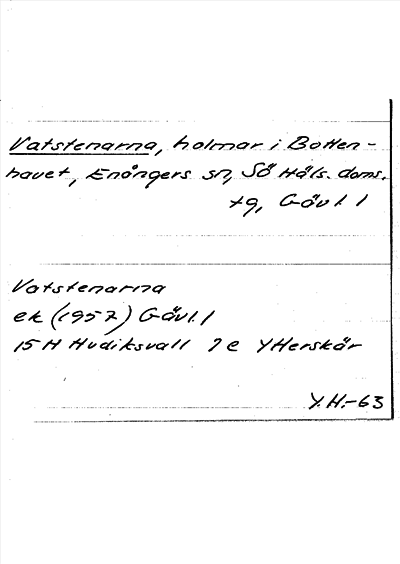 Vatstenarna, holmar i Botten-
havet, Enångers sn, Sö Häls. doms.
tg, Gävl. l
Vatstenarna
ek (1957) Gävl. l
15 H Hudiksvall 7 e YHerskär
Y.H.-63